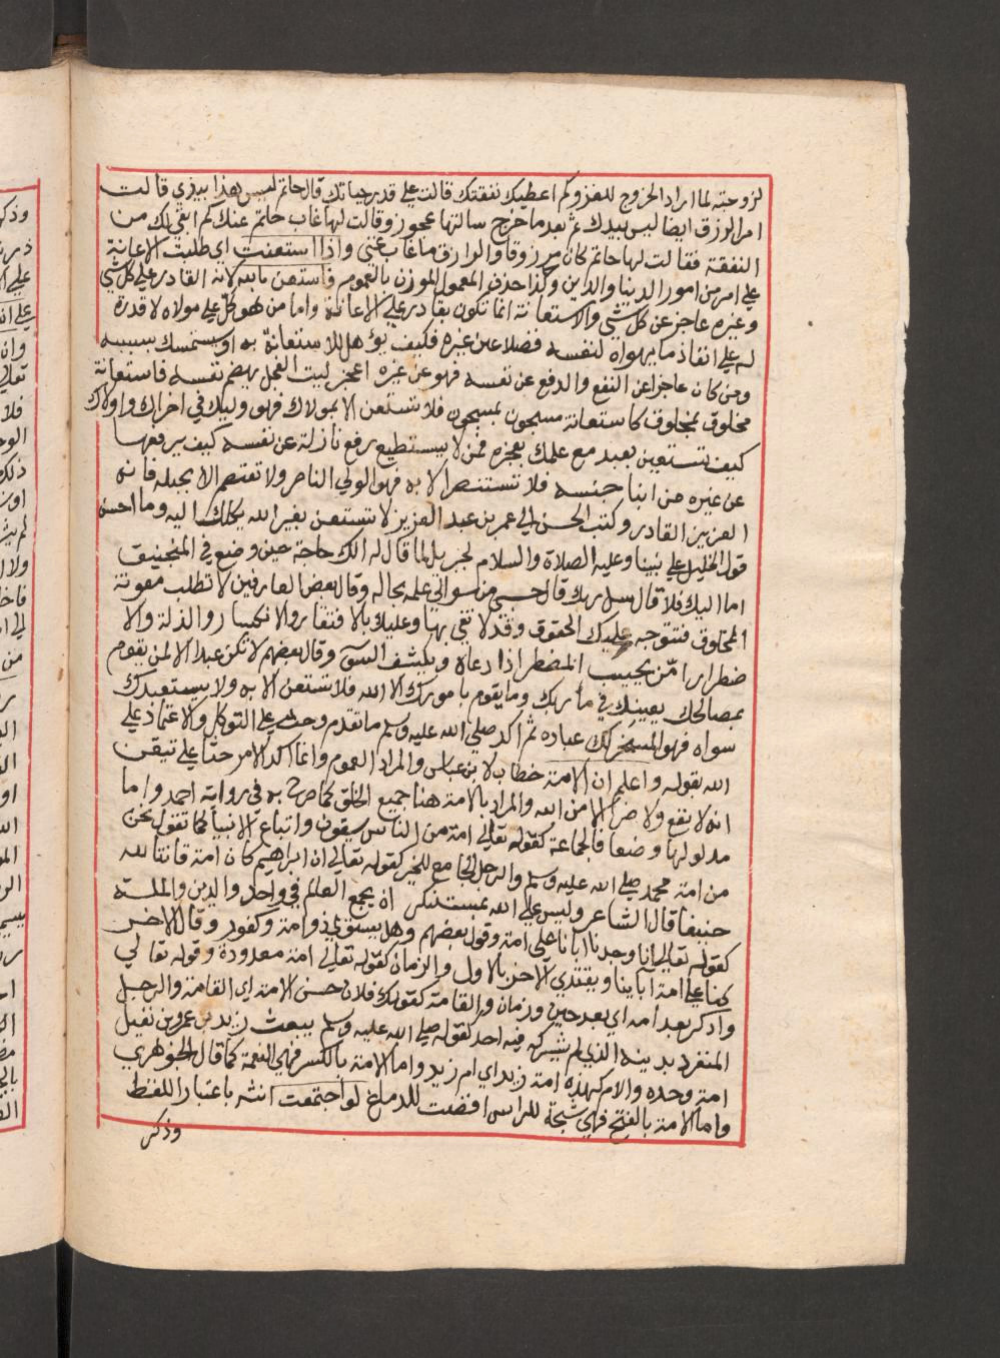 لزوجته لما اراد الخروج للغزو كم اعطيك نفقتك قالت على قدر حياتك قال حاتم ليس هذا بيدي قالت
امر الرزق ايضا ليس بيدك ثم بعد ما خرج سالتها عجوز وقالت لها غاب حاتم عنك كم ابقى لك من
النفقة فقالت لها حاتم كان مرزوقا والرازق ما غاب عني واذا استعنت اي طلبت الاعانة
على امر من امور الدنيا والدين وكذا حذف المعمول الموزن بالعموم فاستعن بالله لانه القادر على كل شي
وغيره عاجز عن كل شي والاستعانة انما تكون بقادر على الاعانة واما من هو كل على مولاه لا قدرة
له على انفاذ ما يهواه لنفسه فضلا عن غيره فكيف يؤهل للاستعانة به او يستمسك بسببه
ومن كان عاجزا عن النفع والدفع عن نفسه فهو عن غيره اعجز ليت الفحل يهضم نفسه فاستعانة
مخلوق بمخلوق كاستعانة مسجون بمسجون فلا تستعن الا بمولاك فهو وليك في اخراك واولاك
كيف تستعين بعبد مع علمك بعجزه فمن لا يستطيع رفع نازلة عن نفسه كيف يرفعها
عن غيره من ابنا جنسه فلا تستنصر الا به فهو الولي الناصر ولا تعتصم الا بحبله فانه
العزيز القادر وكتب الحسن الى عمر بن عبد العزيز لا تستعن بغير الله يكلك اليه وما احسن
قول الخليل على نبينا وعليه الصلاة والسلام لجبريل لما قال له الك حاجة حين وضع في المنجنيق
اما اليك فلا قال سل ربك قال حسبي من سوالي علمه بحالي وقال بعض العارفين لا تطلب معونة
المخلوق فتتوجه عليك الحقوق وقد لا تفي بها وعليك بالافتقار والانكسار والذلة والا
ضطرار امن يجيب المضطر اذا دعاه ويكشف السوء وقال بعضهم لا تكن عبدا الا لمن يقوم
بمصالحك يعينك في مأربك وما يقوم بامورك الا الله فلا تستعن الا به ولا يستعبدك
سواه فهو المسخر لك عباده ثم اكد صلى الله عليه وسلم ما تقدم وحث على التوكل والاعتماد على
الله بقوله واعلم ان الامة خطاب لابن عباس والمراد العموم وانما اكد الامر حثا على تيقن
انه لا نفع ولا ضر الا من الله والمراد بالامة هنا جميع الخلق كما صرح به في رواية احمد واما
مدلولها وضعا فالجماعة كقوله تعالى امة من الناس يسقون واتباع الانبيا كما تقول نحن
من امة محمد صلى الله عليه وسلم والرجل الجامع للخير كقوله تعالى ان ابراهيم كان امة قانتا لله
حنيفا قال الشاعر وليس على الله بمستنكر ان يجمع العالم في واحد والدين والملة
كقوله تعالى انا وجدنا ابانا على امة وقول بعضهم وهل يستوي ذو امة وكفور وقال الاخر
كنا على امة ابائنا ويقتدي الاخر بالاول والزمان كقوله تعالى امة معدودة وقوله تعالى
وادكر بعد امه اي بعد حين وزمان والقامة كقولك فلان حسن الامة اي القامة والرجل
المنفرد بدينه الذي لم يشركه فيه احد كقوله صلى الله عليه وسلم يبعث زيد بن عمرو بن نفيل
امة وحده والام كهذه امة زيد اي ام زيد واما الامة بالكسر فهي النعمة كما قال الجوهري
واما الامة بالفتح فهي شجة للراس افضت للدماغ لو اجتمعت انثه باعتبار اللفظ
وذكر